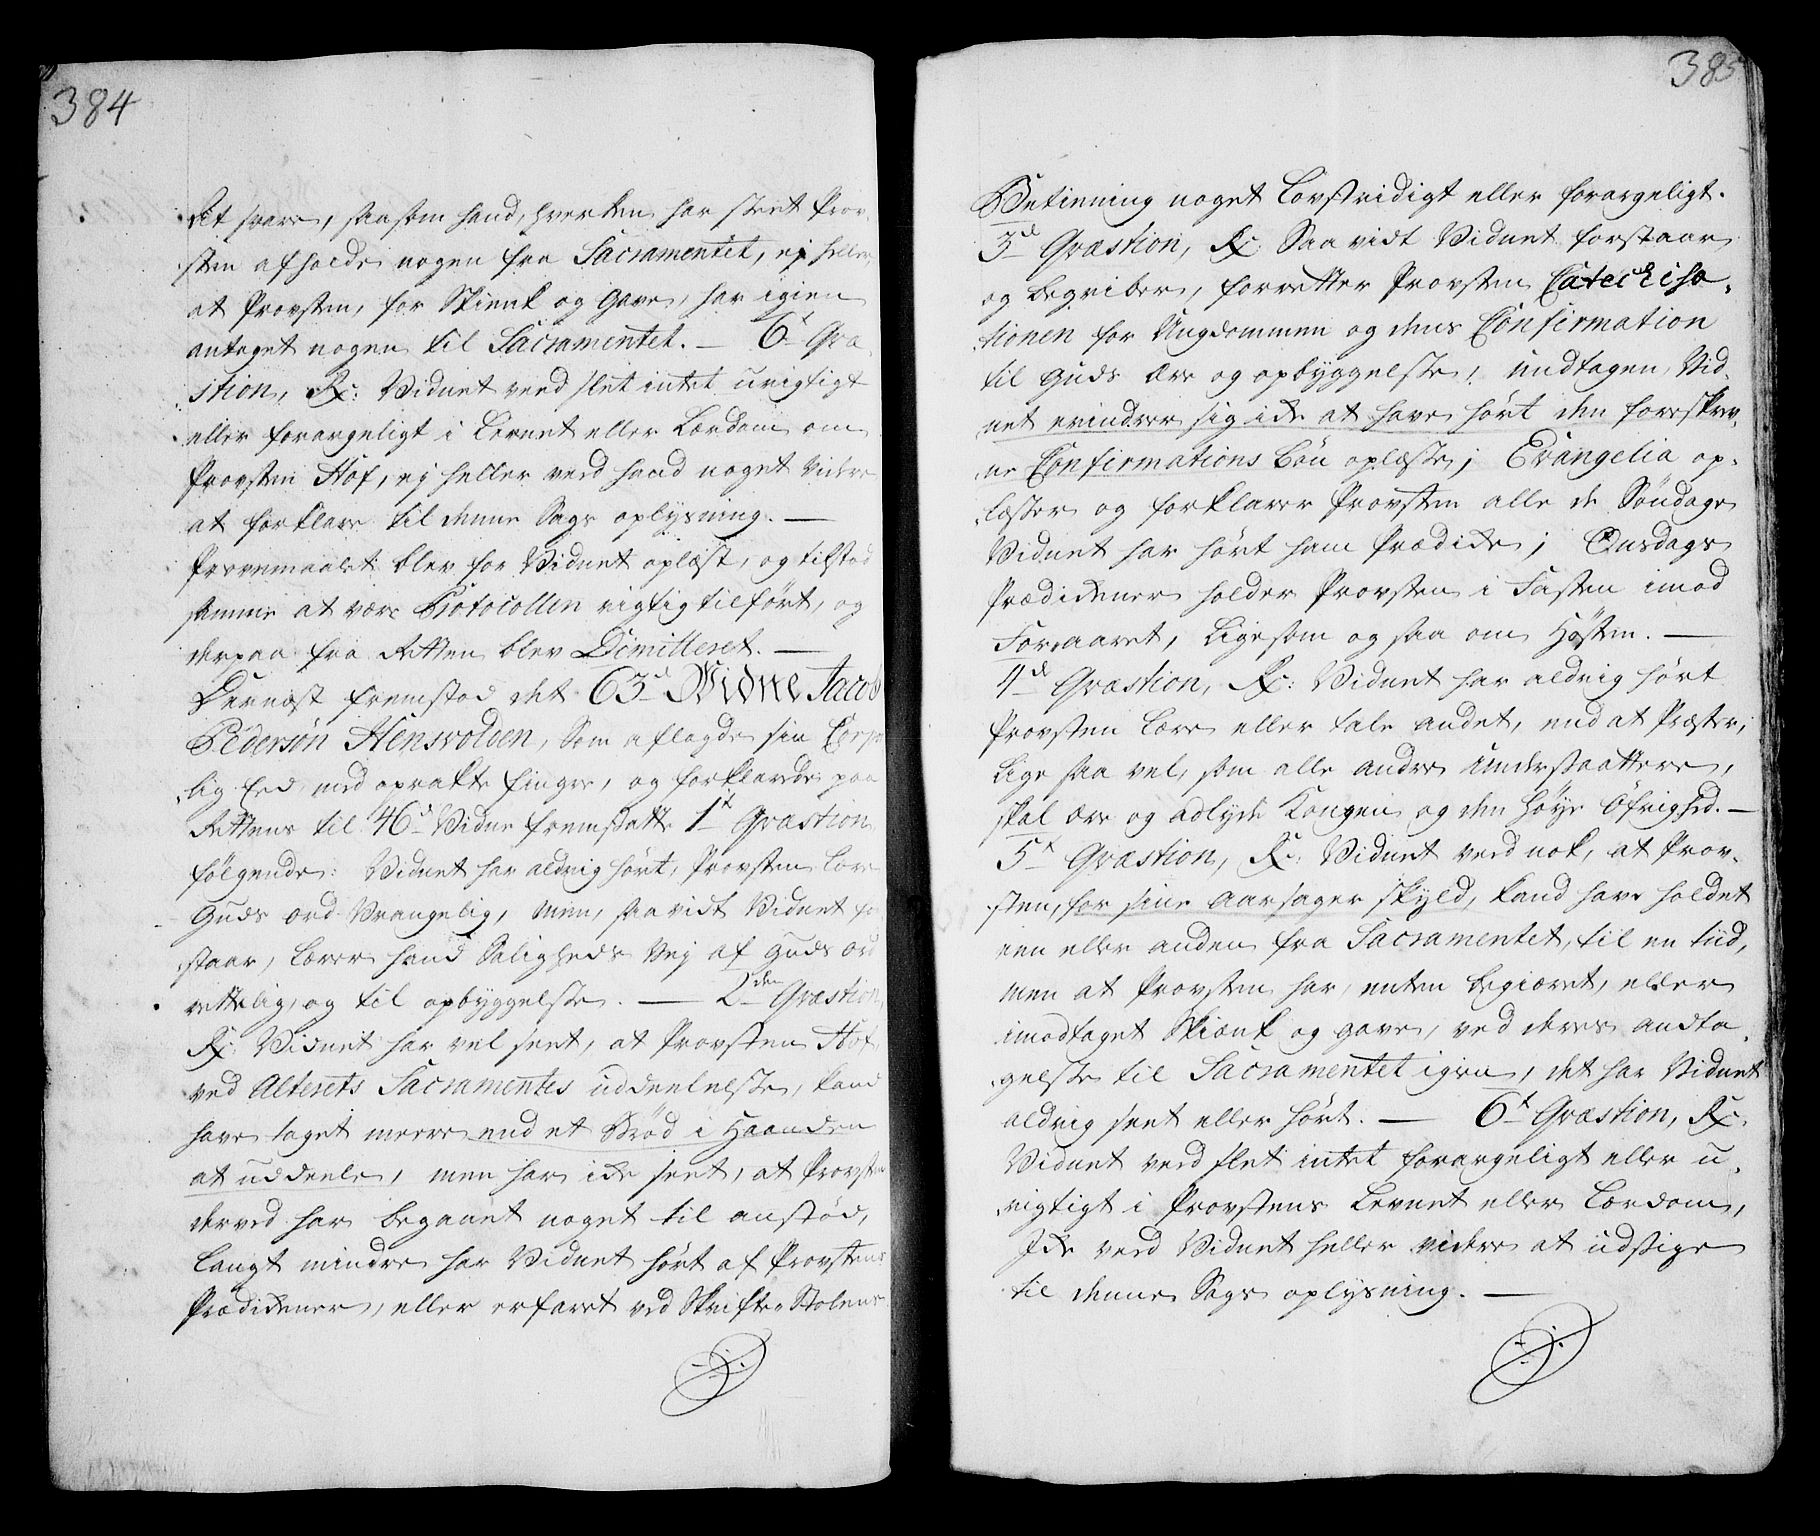 384
det svare, saasom hand, hverken har seet Prov-
sten afholde nogen fra Sacramentet, ej heller,
at Provsten, for Skienk og Gave, har igien
antaget nogen til Sacramentet. — 6t Qvæ-
stion, Rx: Vidnet veed slet intet urigtigt
eller forargeligt i Levnet eller Lærdom om
Provsten Hof, ej heller veed hand noget videre
at forklare til denne Sags oplysning. —
Provemaalet blev for Vidnet oplæst, og tilstod
samme at være Protocollen rigtig tilført, og
derpaa fra Retten blev Dimitteret. —
Dernæst fremstod det 63d Vidne Jacob
Pedersøn Hensvolden, Som aflagde sin Corpo-
lig Eed, med oprakte fingre, og forklarede paa
Rettens til 46d Vidne fremsatte 1t Qvæstion
følgende: Vidnet har aldrig hørt, Provsten lære
Guds ord Vrangelig, men, saavidt Vidnet for-
staar, lærer hand Saligheds Vej af Guds ord
rettelig, og til opbyggelse. — 2den Qvæstion,
Rx: Vidnet har vel seet, at Provsten Hof,
ved Alterets Sacramentes uddeelelse, kand
have taget meere end et Brød i Haanden
at uddeele, men har icke seet, at Provsten
derved har begaaet noget til anstød,
langt mindre har Vidnet hørt af Provstens
Prædikener, eller erfaret ved Skrifte Stolens
385
Betienning noget Lovstridigt eller forargeligt.
3d Qvæstion, Rx: Saavidt Vidnet forstaar
og begriber, forretter Provsten Catechisa-
tionen for Ungdommen og dens Confirmation
til Guds Ære og opbyggelse, undtagen Vid-
net erindrer sig icke at have hørt den foreskrev-
ne Confirmations Bøn oplæse; Evangelia op-
læser og forklarer Provsten alle de Søndage
Vidnet har hørt ham Prædike; Onsdags
Prædikener holder Provsten i Fasten imod
Foraaret, ligesom og saa om Høsten. —
4d Qvæstion, Rx: Vidnet har aldrig hørt
Provsten lære eller tale andet, end at Præster,
lige saa vel, som alle andre Undersaattere,
skal ære og adlyde Kongen og den høye Øfrighed. —
5t Qvæstion, Rx: Vidnet veed nok, at Prov-
sten, for sine aarsager skyld, kand have holdet
een eller anden fra Sacramentet, til en tiid,
men at Provsten har, enten begiæret, eller
imodtaget Skiænk og gave, ved deres andta-
gelse til Sacramentet igien, det har Vidnet
aldrig seet eller hørt. — 6t Qvæstion, Rx:
Vidnet veed slet intet forargeligt eller u-
rigtigt i Provstens Levnet eller Lærdom,
Icke veed Vidnet heller videre at udsige
til denne Sags oplysning. —